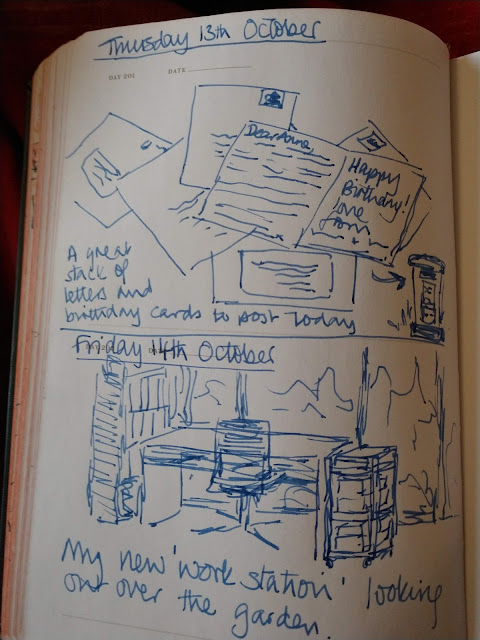 Thursday 13th October
DAY 201 DATE
Dear Anna,
Happy
Birthday!
love
from
A great
stack of
letters and
birthday cards to post today
Friday 14th October
My new 'work station' looking
out over the garden.